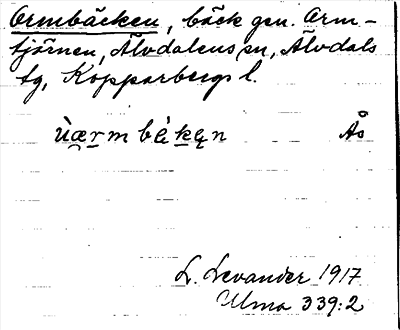 Ormbäcken, bäck gen. Orm-
tjörnen, Älvdalens sn, Älvdals
tg, Kopparbergs l.
ùærm bèkęn Ås
L. Levander 1917
Ulma 339:2